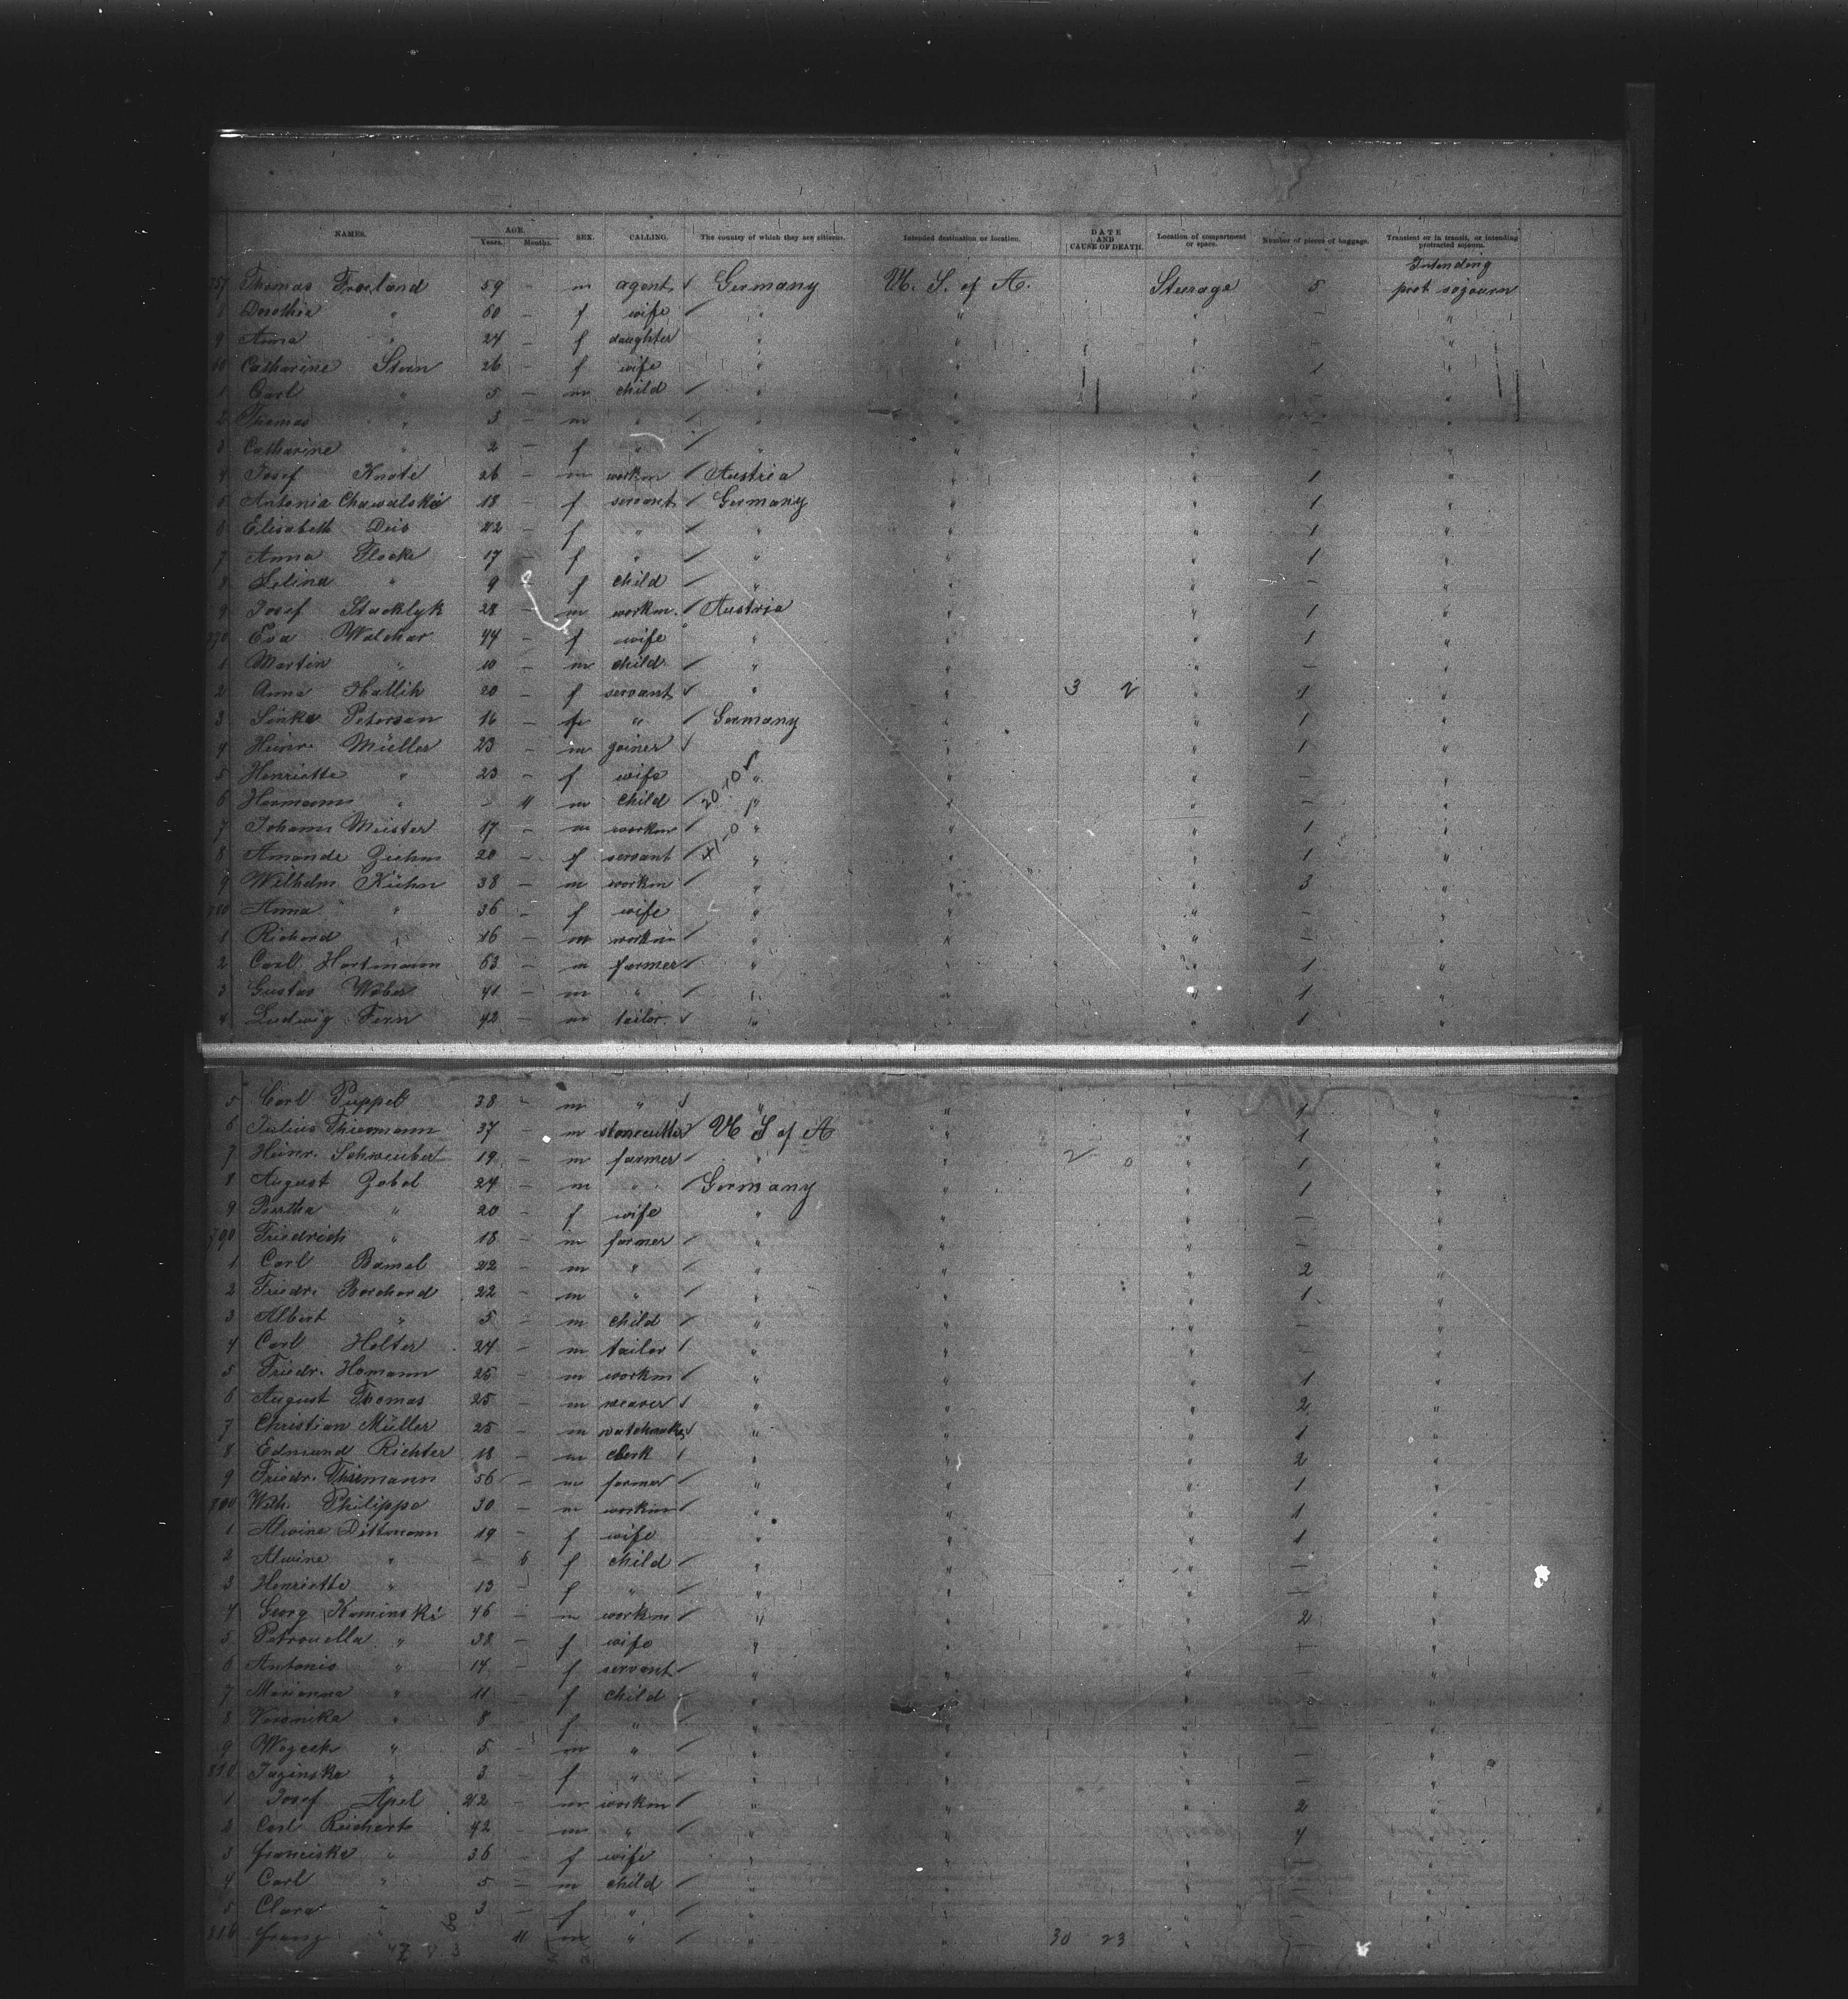 NAMES. AGE. Years. Months. SEX. CALLING. The country of which they are citizens. Intended destination or location. DATE AND CAUSE OF DEATH. Location of compartment or space. Number of pieces of baggage. Transient or in transit, or intending protracted sojourn.
Intending
757 Thomas 59 – m agent Germany U. S. of A. Steerage 5 prot sojourn
8 Dorothea " 60 – f wife " " " – "
9 Anna " 24 – f daughter " " " – "
60 Catharine 26 – f wife " " " 1 "
1 Carl " 5 – m child " " " – "
2 Thomas " 3 – m " " " " – "
3 Catharine " 2 – f " " " " – "
4 Josef Knote 26 – m workm Austria " " 1 "
5 Antonia 18 – f servant Germany " " 1 "
6 Elisabeth 22 – f " " " " 1 "
7 Anna Flocke 17 – f " " " " 1 "
8 " 9 – f child " " " – "
9 Josef 28 – m workm. Austria " " 1 "
770 Eva Walchar 44 – f wife " " " 1 "
1 Martin " 10 – m child " " " – "
2 Anna Hallik 20 – f servant " " 3 2 " 1 "
3 Petersen 16 – f " Germany " " 1 "
4 Heinr. Müller 23 – m joiner " " " 1 "
5 Henriette " 23 – f wife " " " – "
6 Hermann " – 11 m child " " " – "
7 Johann Meister 17 – m workm " " " 1 "
8 Amanda Ziehm 20 – f servant " " " 1 "
9 Wilhelm Kühn 38 – m workm " " " 3 "
780 Anna " 36 – f wife " " " – "
1 Richard " 16 – m workm " " " – "
2 Carl Hartmann 53 – m farmer " " " 1 "
3 Gustav Weber 41 – m " " " " 1 "
4 Ludwig Fern 42 – m tailor " " " 1 "
5 Carl Puppel 38 – m " " " " 1 "
6 Julius Thiemann 37 – m stonecutter U S of A " " 1 "
7 Heinr. Schreubert 19 – m farmer " " 2 0 " 1 "
8 August Zobel 24 – m " Germany " " 1 "
9 Bertha " 20 – f wife " " " – "
790 Friedrich " 18 – m farmer " " " – "
1 Carl Bamel 22 – m " " " " 2 "
2 Friedr. Borchard 22 – m " " " " 1 "
3 Albert " 5 – m child " " " – "
4 Carl Holter 24 – m tailor " " " – "
5 Friedr. Homann 25 – m workm " " " 1 "
6 August Thomas 25 – m weaver " " " 2 "
7 Christian Müller 25 – m watchmaker " " " 1 "
8 Edmund Richter 18 – m clerk " " " 2 "
9 Friedr. Thiemann 56 – m farmer " " " 1 "
800 Wilh. Philippo 30 – m workm " " " 1 "
1 Alwine Dittmann 19 – f wife " " " 1 "
2 Alwine " – 6 f child " " " – "
3 Henriette " 13 – f " " " " – "
4 Georg Kaminski 46 – m workm " " " 2 "
5 Petronella " 38 – f wife " " " – "
6 Antonie " 14 – f servant " " " – "
7 Marianna " 11 – f child " " " – "
8 Veronika " 8 – f " " " " – "
9 " 5 – m " " " " – "
810 " 3 – f " " " " – "
1 Josef Apel 22 – m workm " " " 2 "
2 Carl Reichert 42 – m " " " " 4 "
3 Franciska " 36 – f wife " " " – "
4 Carl " 5 – m child " " " – "
5 Clara " 3 – f " " " " – "
816 Franz " 11 m " " " 30 23 " – "